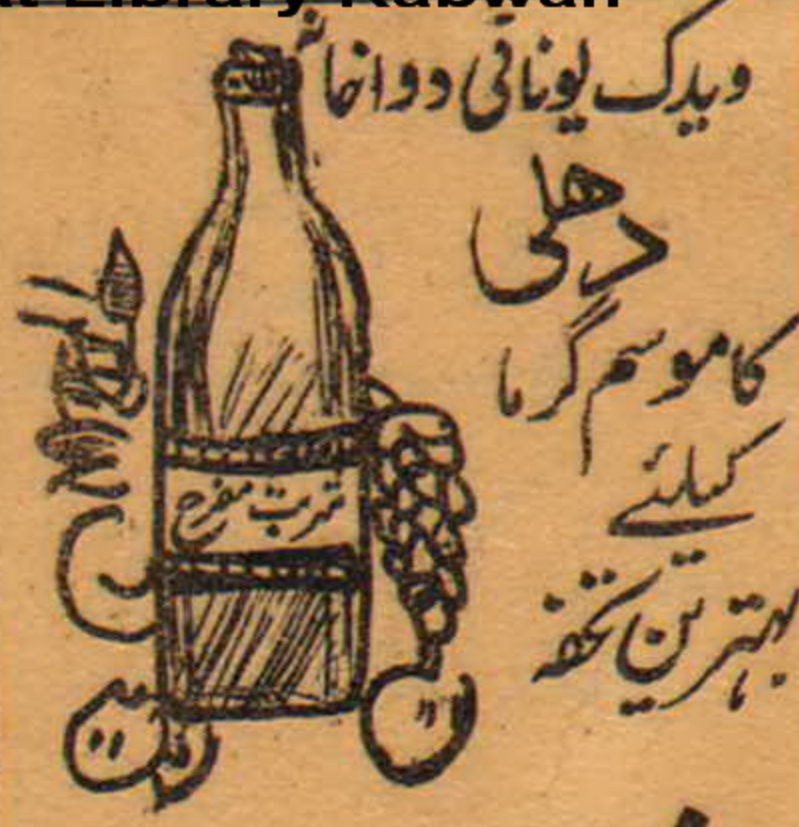 Library Rabwah
ویدک یونانی دواخانہ
دهلی
کا موسم گرما
کیلئے
بہترین تحفہ
شربت مفرح